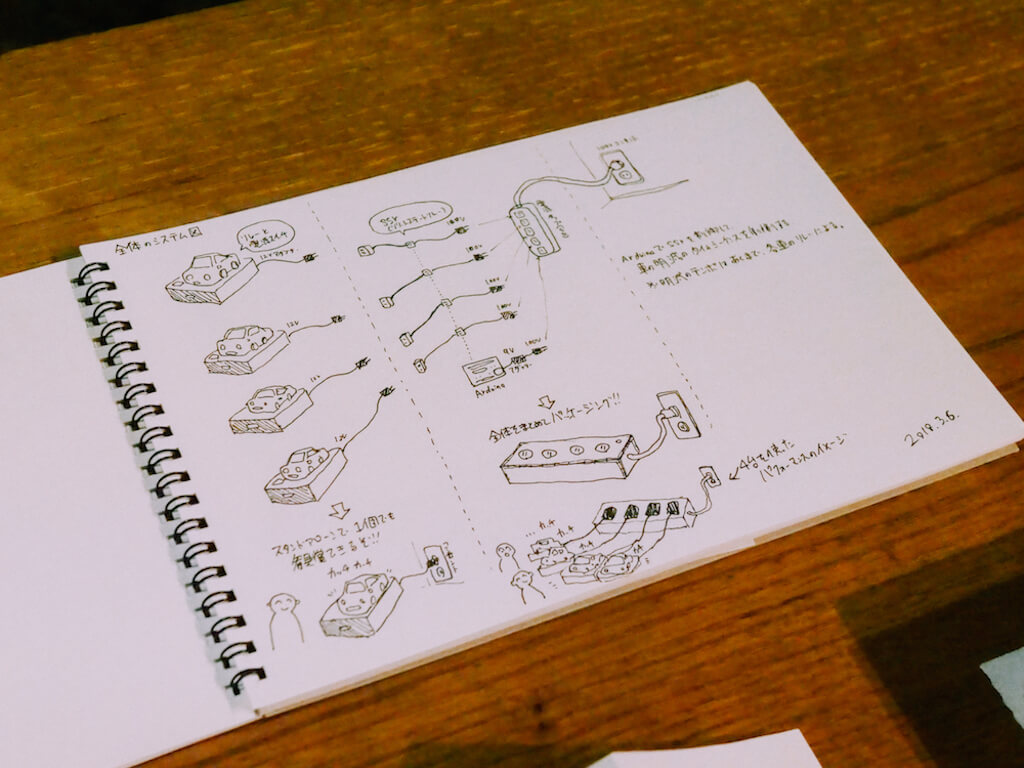 全体のシステム図
リレーと
12Vアダプタ
12V
12V
12V
スタンドアローンで、1個でも
鑑賞できるぞ!!
カッチ カッチ
SSR
ソリッドステートリレー
100V
100V
100V
100V
100V
9V
アダプター
Arduino
100Vコンセント
全体をまとめてパッケージング!!
カチ
カチ
カチ
カチ
4台を使った
パフォーマンスのイメージ
ArduinoでSSRを制御して、
車の明滅のタイムシーケンスを制御する
※明滅のテンポはあくまで、各車のリレーによる。
2019.3.6.